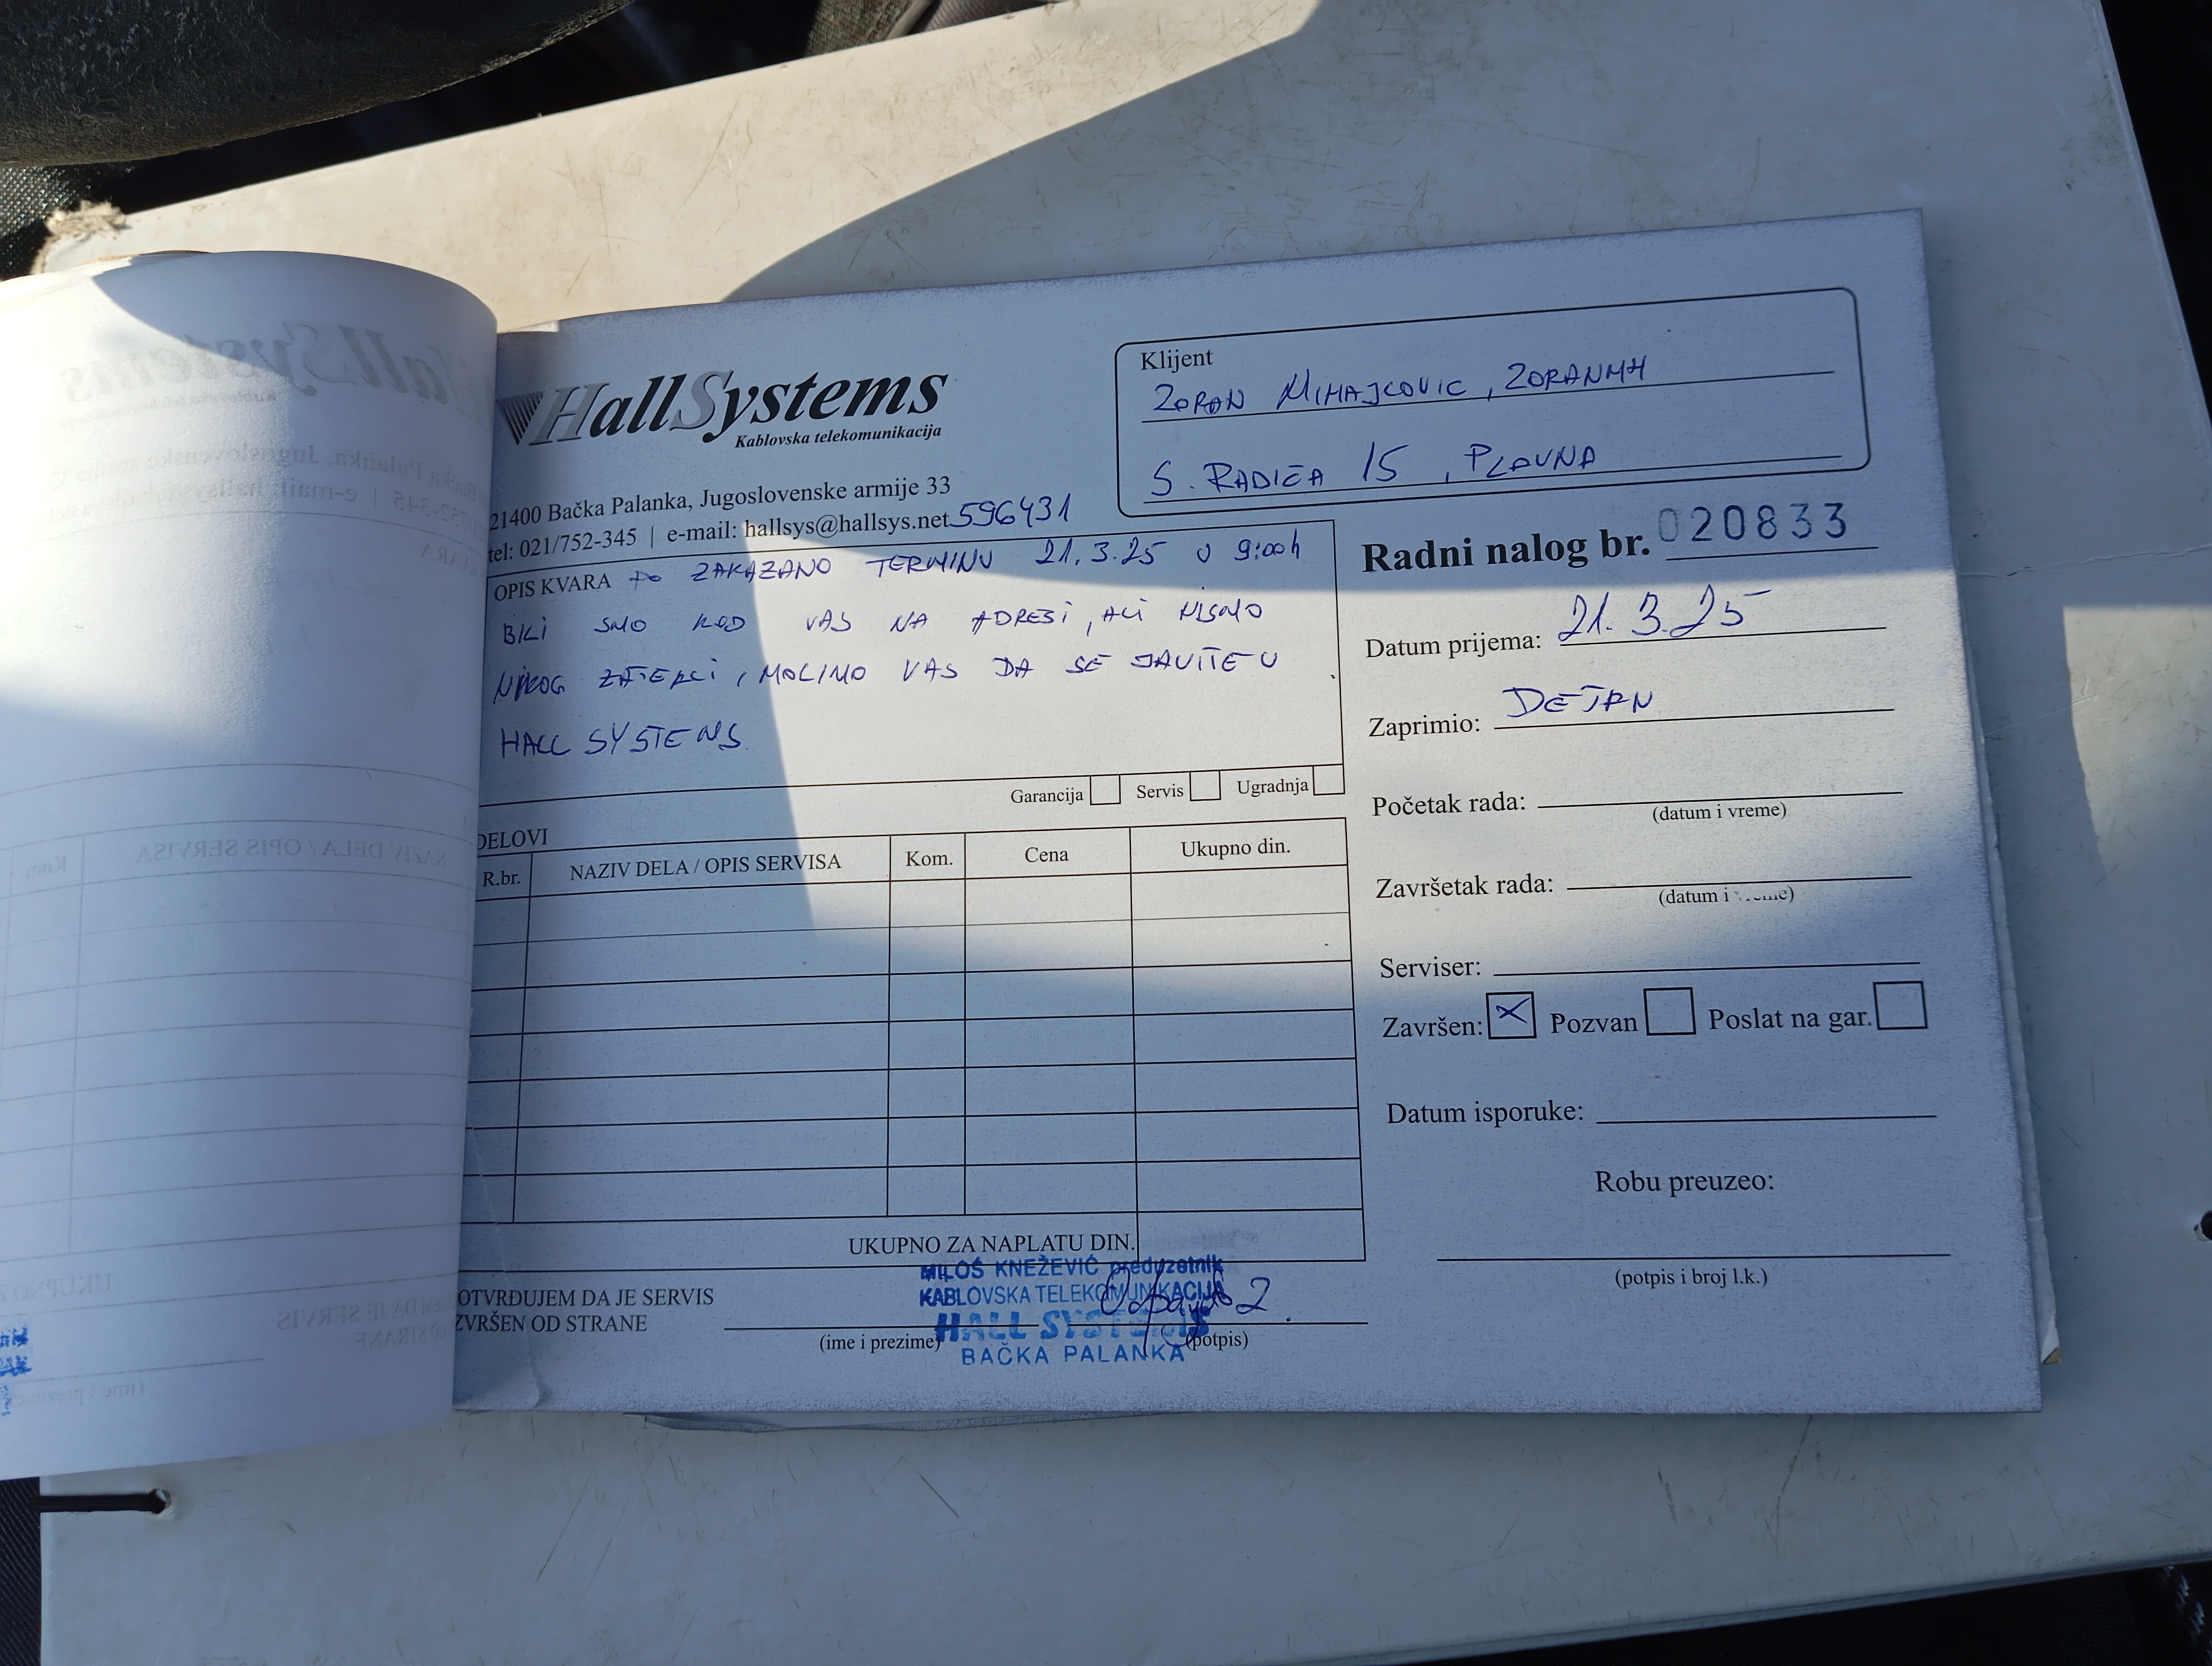 HallSystems
Kablovska telekomunikacija
21400 Bačka Palanka, Jugoslovenske armije 33
tel: 021/752-345 | e-mail: hallsys@hallsys.net 596431
Klijent
ZORAN MIHAJLOVIC, ZORANMH
S. RADIĆA 15, PLAVNA
Radni nalog br. 020833
OPIS KVARA PO ZAKAZANO TERMINU 21.3.25 U 9:00h
BILI SMO KOD VAS NA ADRESI, ALI NISMO
NIKOG ZATEKLI, MOLIMO VAS DA SE JAVITE U
HALL SYSTEMS.
Garancija Servis Ugradnja
Datum prijema: 21.3.25
Zaprimio: DEJAN
Početak rada:
(datum i vreme)
Završetak rada:
(datum i vreme)
Serviser:
Završen: X Pozvan Poslat na gar.
Datum isporuke:
Robu preuzeo:
(potpis i broj l.k.)
DELOVI
R.br. NAZIV DELA / OPIS SERVISA Kom. Cena Ukupno din.
UKUPNO ZA NAPLATU DIN.
OTVRĐUJEM DA JE SERVIS
ZVRŠEN OD STRANE
(ime i prezime) (potpis)
MILOŠ KNEŽEVIĆ preduzetnik
KABLOVSKA TELEKOMUNIKACIJA
HALL SYSTEMS
BAČKA PALANKA